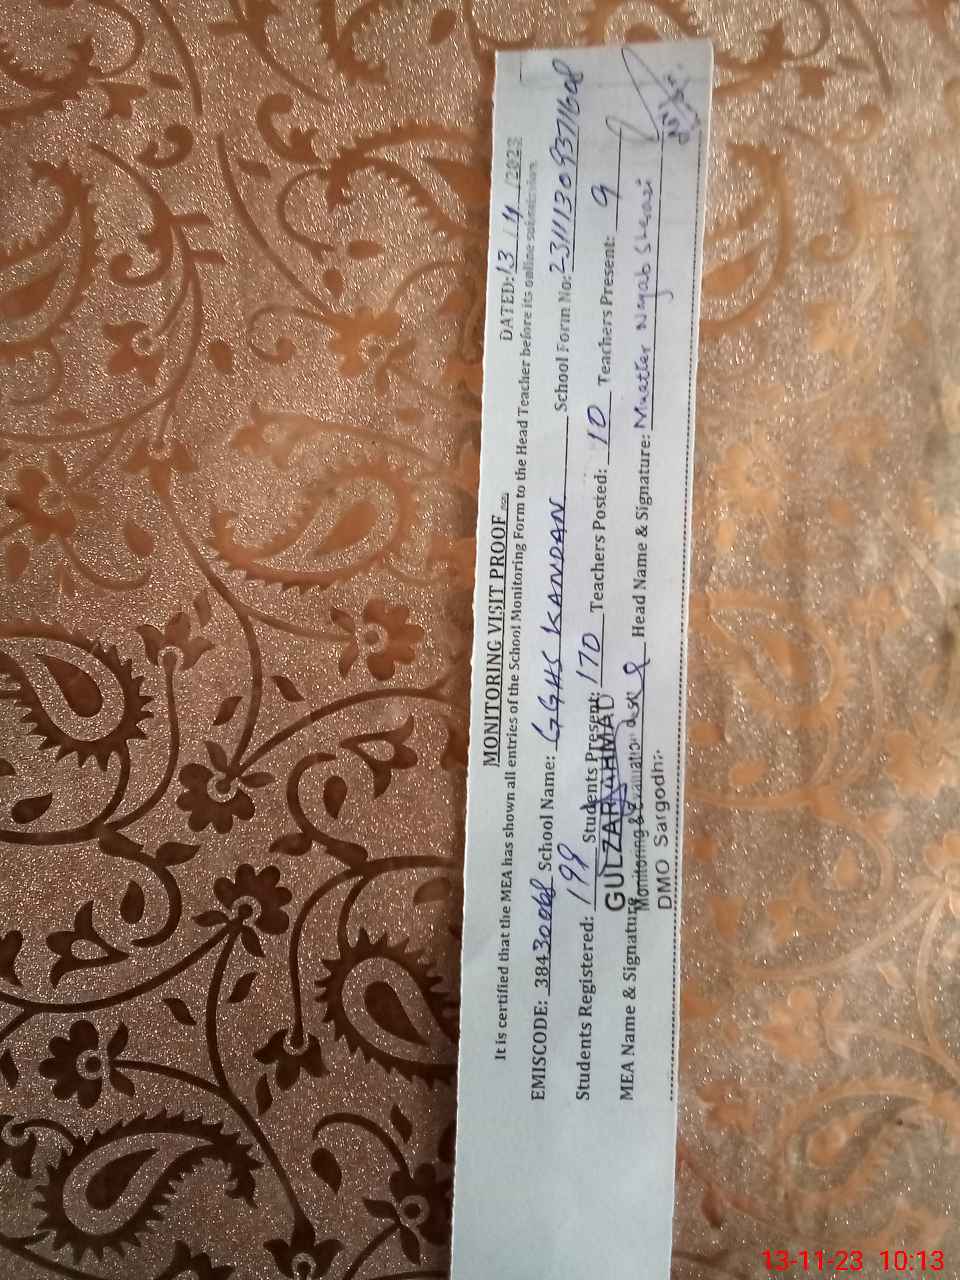 MONITORING VISIT PROOF DATED: 13/11/2023
It is certified that the MEA has shown all entries of the School Monitoring Form to the Head Teacher before its online submission.
EMISCODE: 38430068 School Name: GGHS KANDAN School Form No: 23111309371608
Students Registered: 199 Students Present: 170 Teachers Posted: 10 Teachers Present: 9
MEA Name & Signature GULZAR AHMAD Head Name & Signature: Nayab
Monitoring & Evaluation
DMO Sargodha
13-11-23 10:13